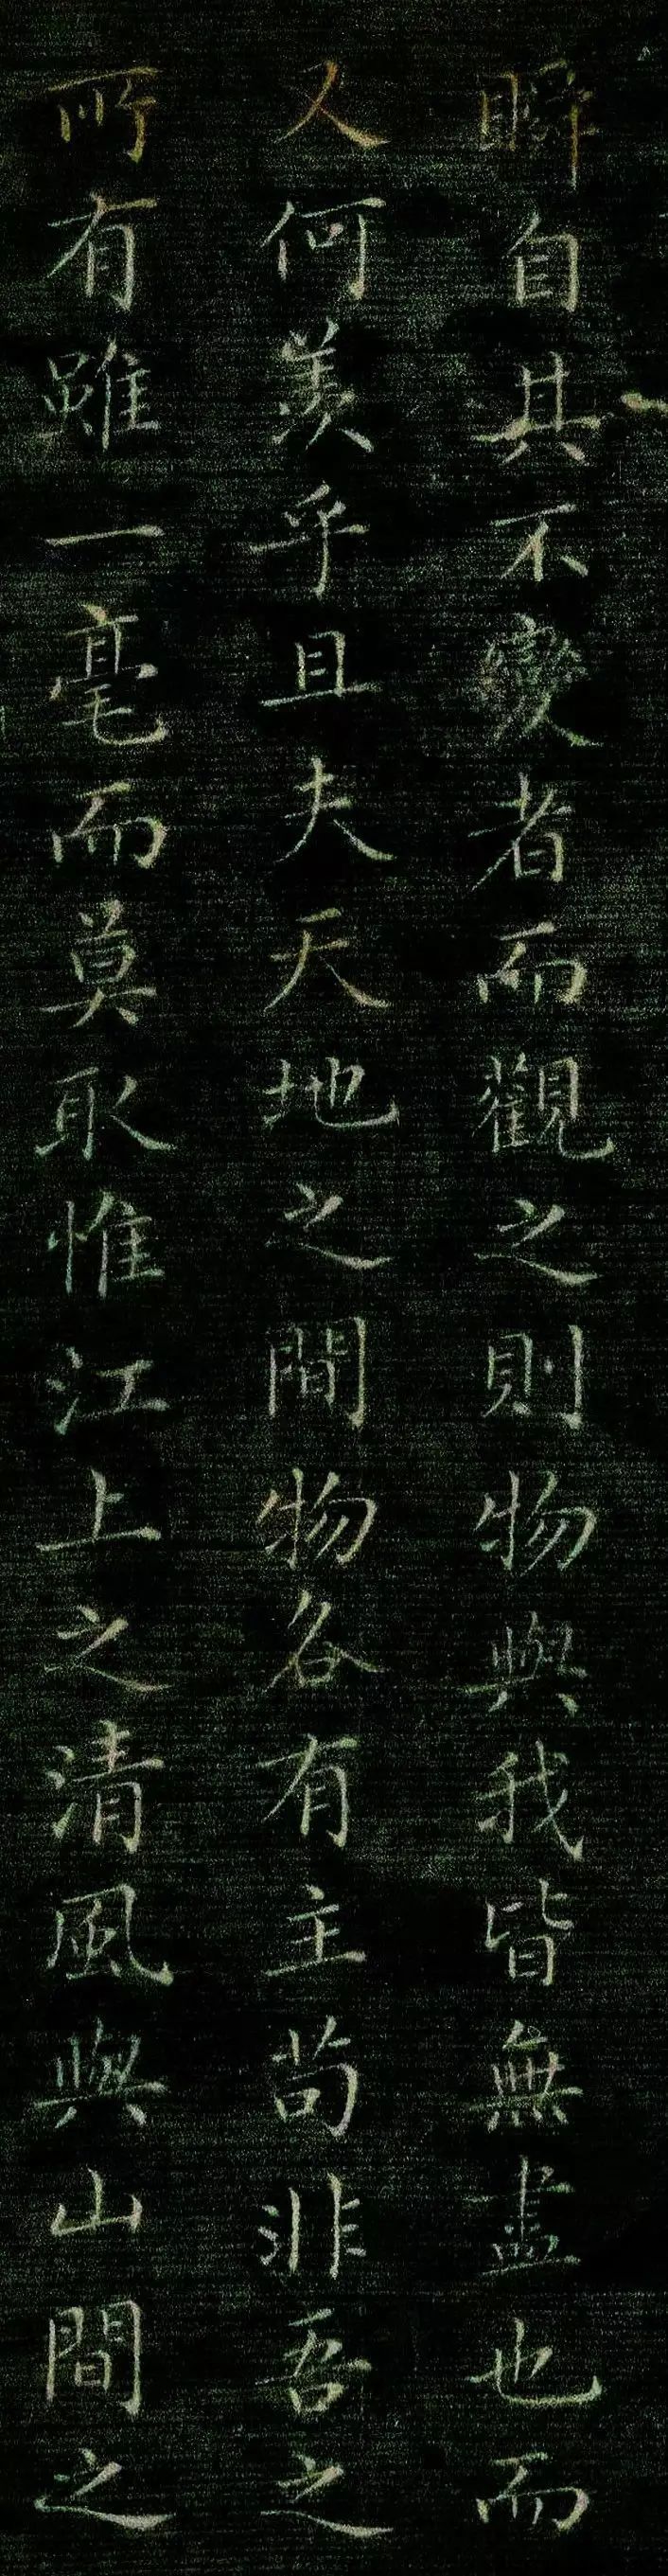 瞬自其不變者而觀之則物與我皆無盡也而
又何羨乎且夫天地之間物各有主苟非吾之
所有雖一毫而莫取惟江上之清風與山間之